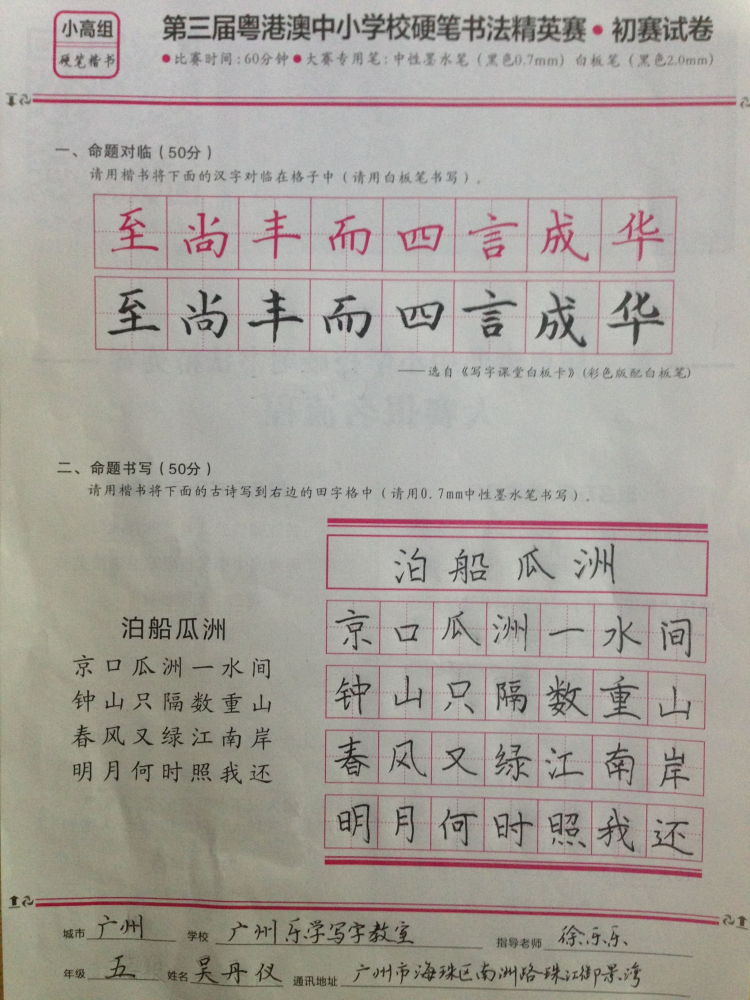 小高组
硬笔楷书
第三届粤港澳中小学校硬笔书法精英赛•初赛试卷
●比赛时间:60分钟●大赛专用笔:中性墨水笔(黑色0.7mm)白板笔(黑色2.0mm)
一、命题对临(50分)
请用楷书将下面的汉字对临在格子中(请用白板笔书写)。
至尚丰而四言成华
至尚丰而四言成华
——选自《写字课堂白板卡》(彩色版配白板笔)
二、命题书写(50分)
请用楷书将下面的古诗写到右边的田字格中(请用0.7mm中性墨水笔书写)。
泊船瓜洲
京口瓜洲一水间
钟山只隔数重山
春风又绿江南岸
明月何时照我还
泊船瓜洲
京口瓜洲一水间
钟山只隔数重山
春风又绿江南岸
明月何时照我还
城市 广州 学校 广州乐学写字教室 指导老师 徐乐乐
年级 五 姓名 吴丹仪 通讯地址 广州市海珠区南洲路珠江御景湾